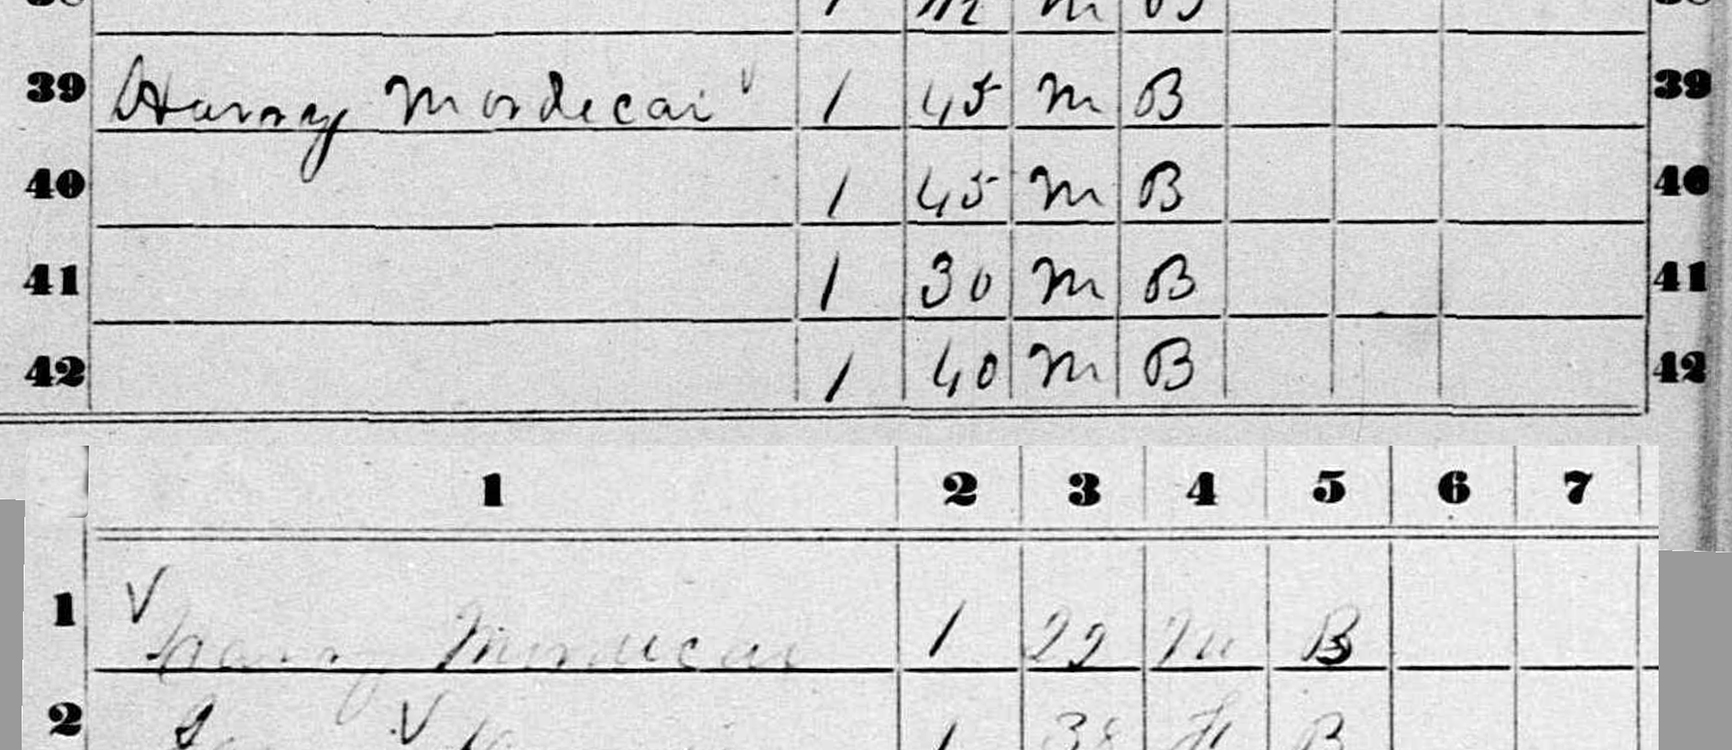 39 Harry Mordecai 1 45 m B 39
40 1 45 m B 40
41 1 30 m B 41
42 1 40 m B 42
1 2 3 4 5 6 7
1 Harry Mordecai 1 22 m B
2 1 38 B